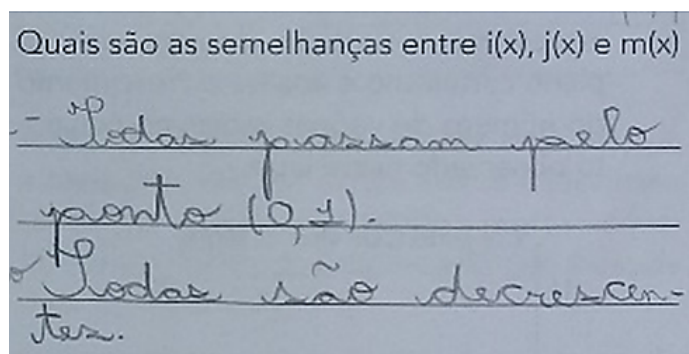 Quais são as semelhanças entre i(x), j(x) e m(x)
- Todas passam pelo
ponto (0,1).
Todas são decrescen-
tes.